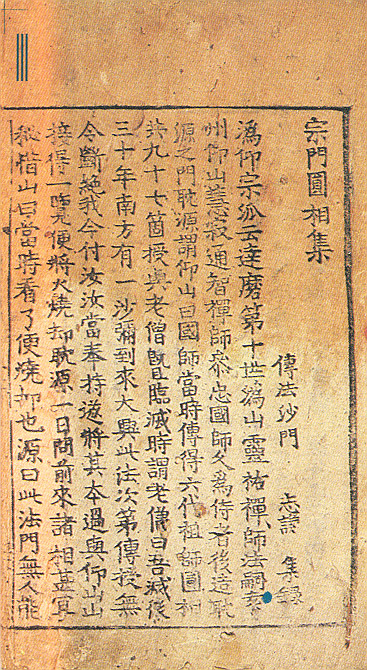 宗門圓相集
傳法沙門 志謙 集錄
潙仰宗派云達磨第十世潙山靈祐禪師法嗣袁
州仰山慧寂通智禪師參忠國師久爲侍者後造耽
源之門耽源謂仰山曰國師當時傳得六代祖師圓相
共九十七箇授與老僧旣臨滅時謂老僧曰吾滅後
三十年南方有一沙彌到來大興此法次第傳授無
令斷絶我今付汝汝當奉持遂將其本過與仰山山
接得一覽便將火燒却耽源一日問前來諸相甚宜
秘惜山曰當時看了便燒却也源曰此法門無人能